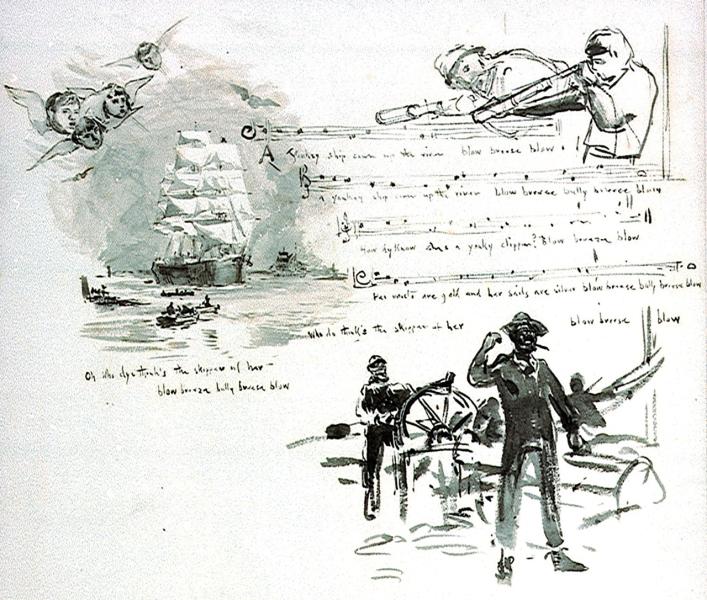 A Yankey ship came up the river blow breeze blow
a yankey ship come up the river blow breeze bully breeze blow
How d'y Know She's a yanky clipper? Blow breeze blow
her masts are gold and her sails are silver blow breeze bully breeze blow
Who do think's the skipper of her blow breeze blow
Oh who dye think's the skipper of her
blow breeze bully breeze blow